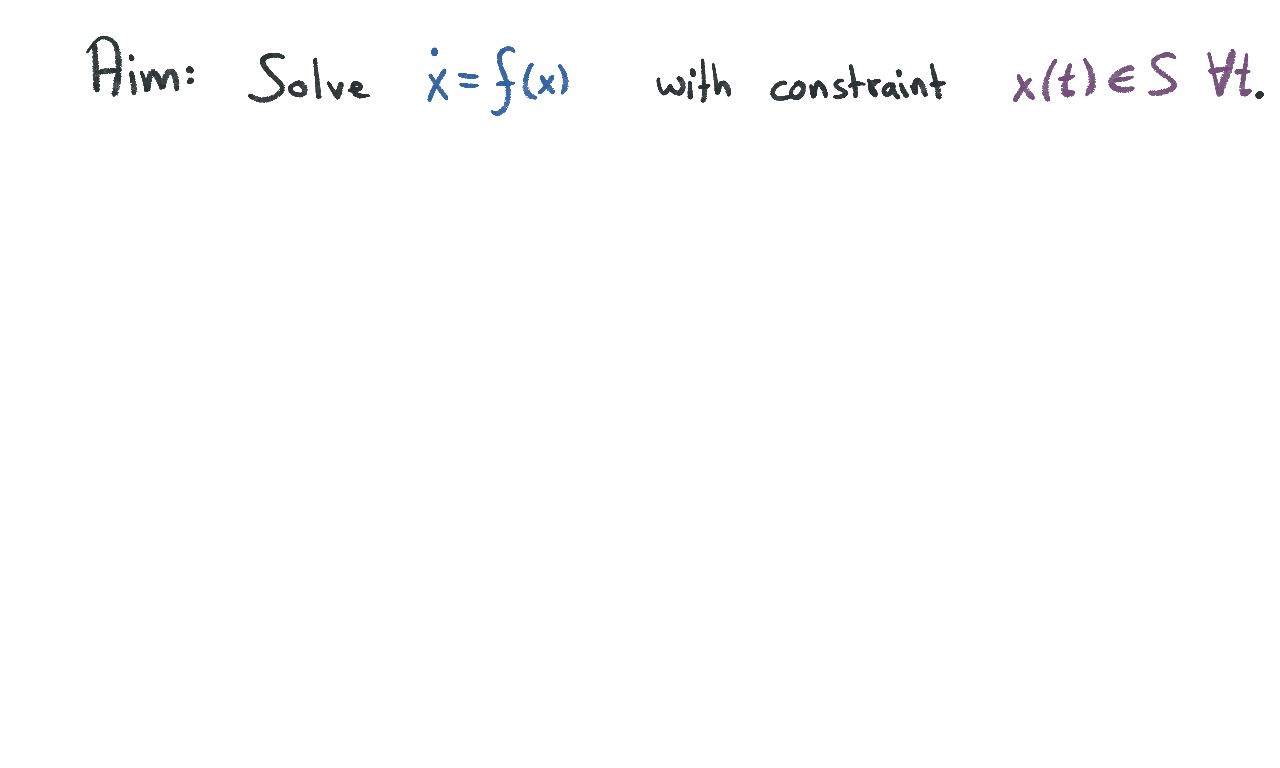 Aim: Solve ẋ = f(x) with constraint x(t) ∈ S ∀t.